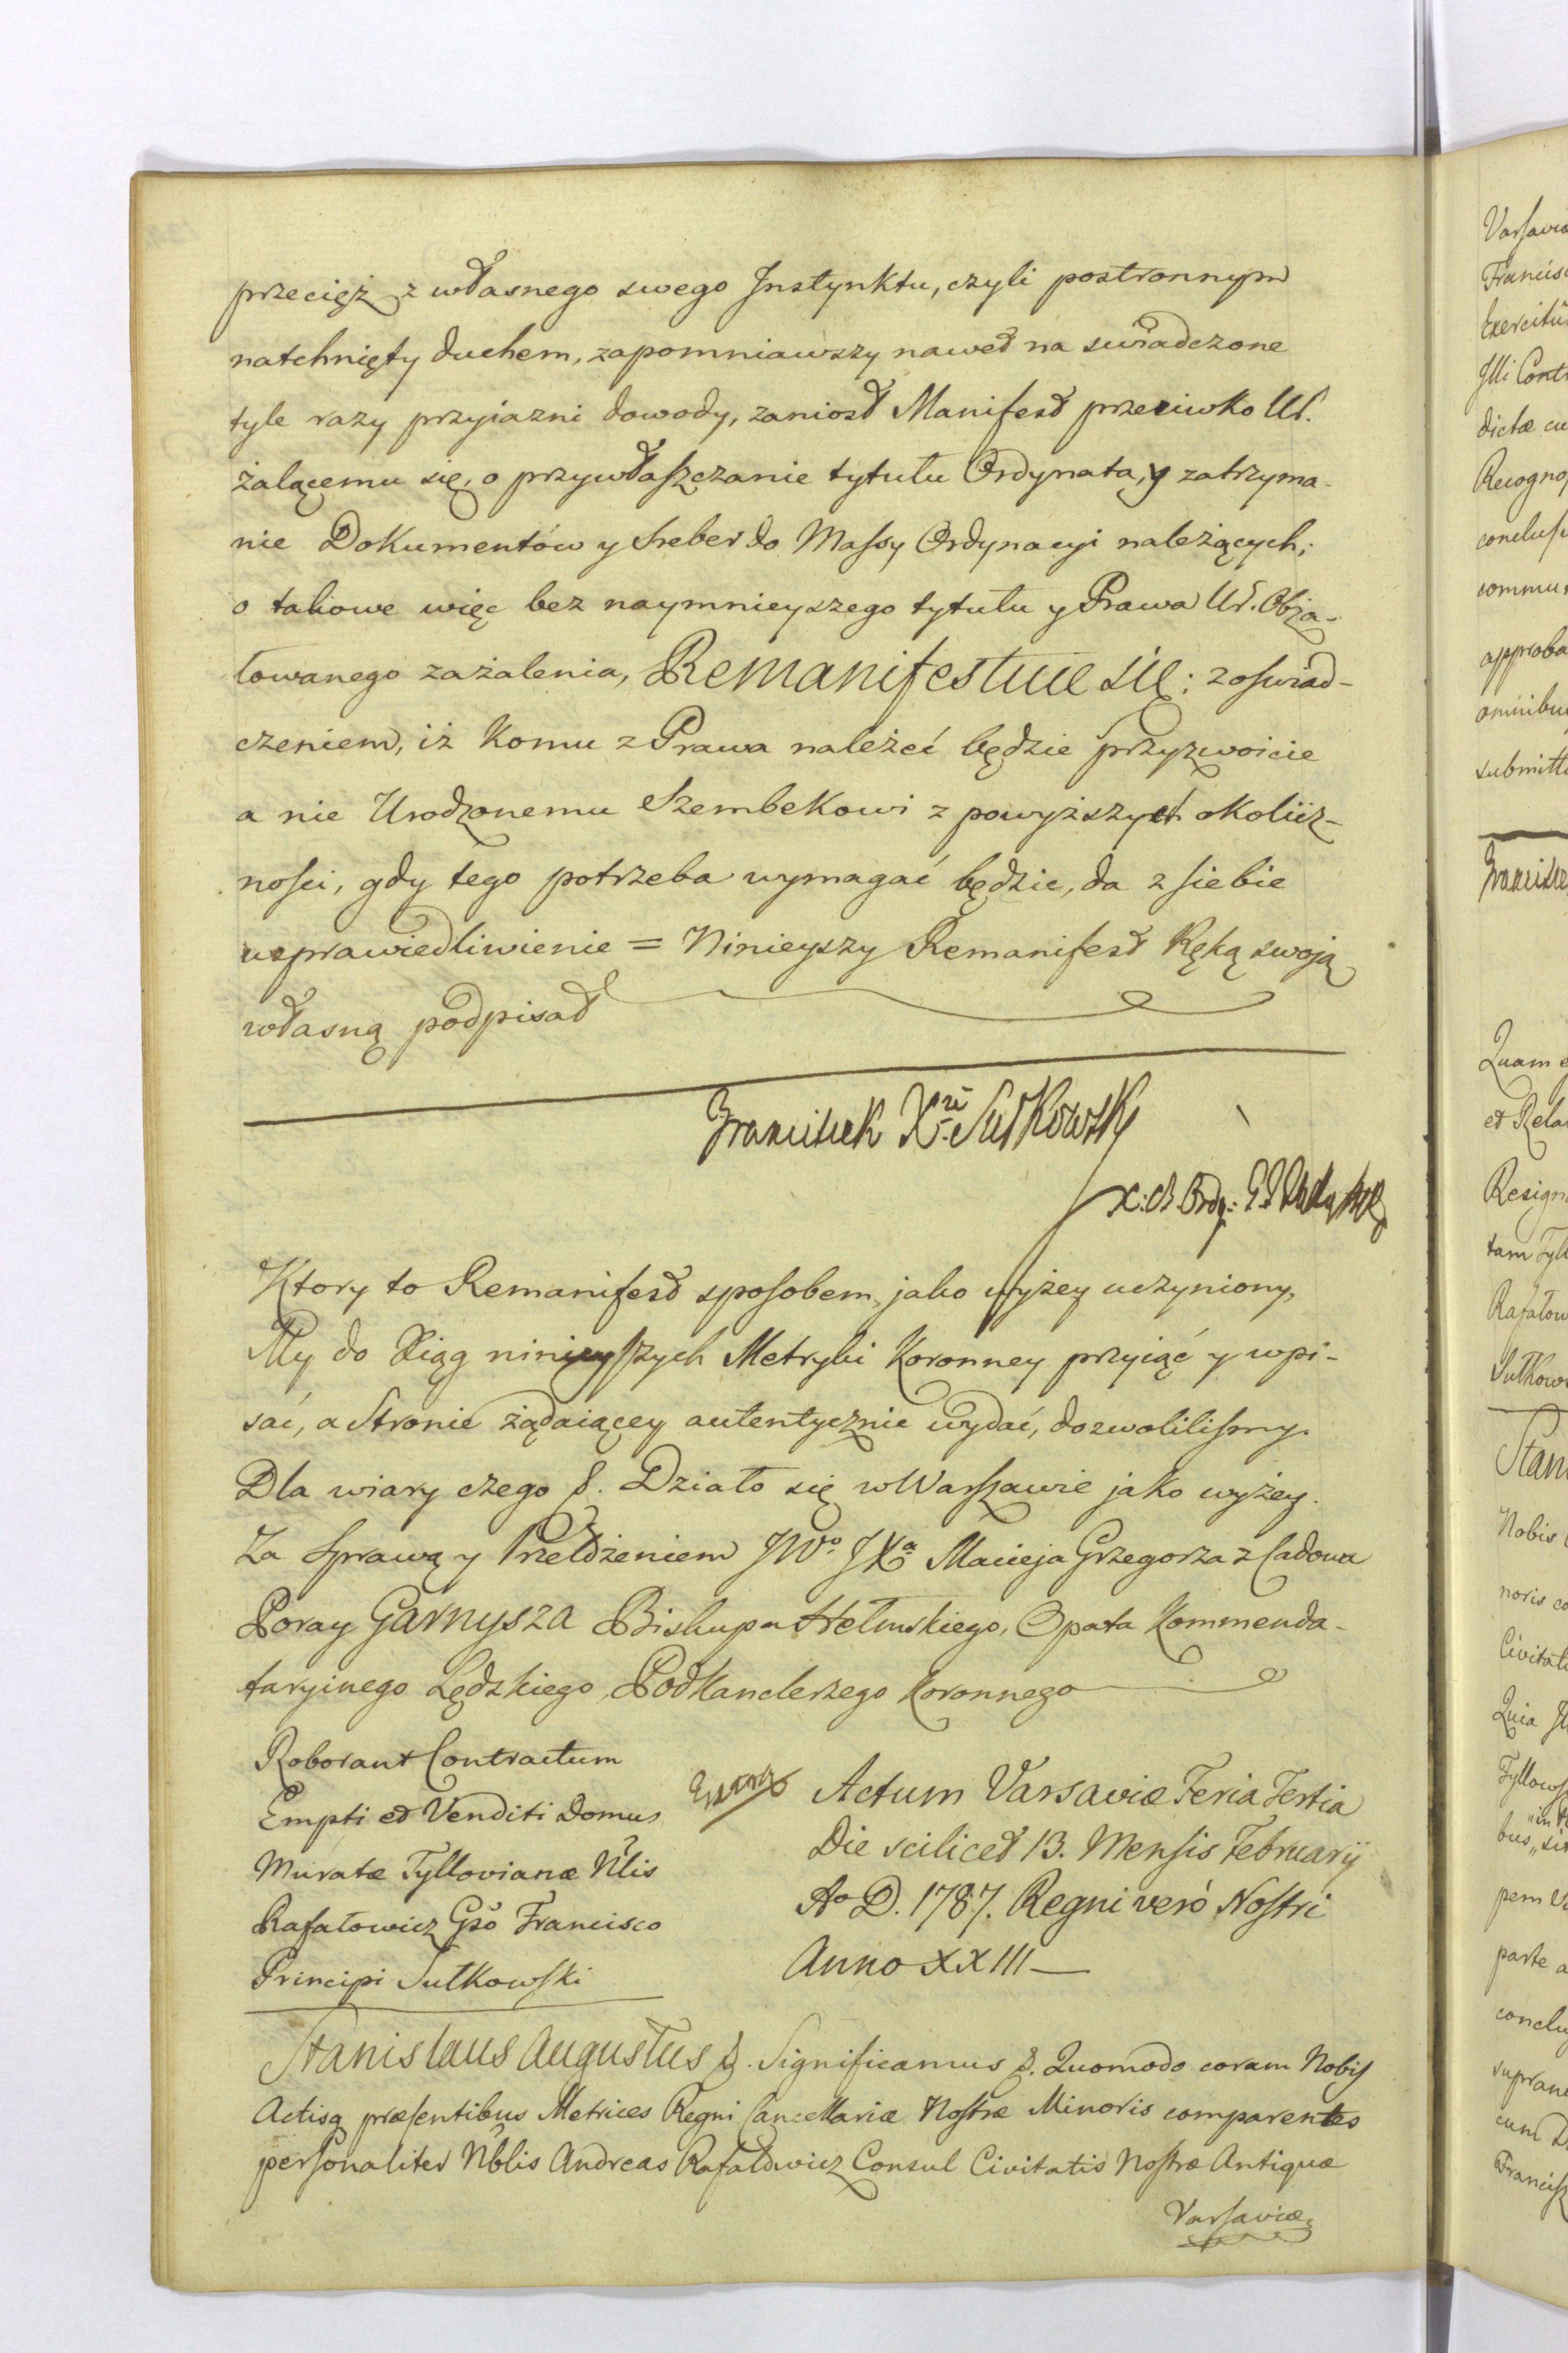 przecięż z własnego swego Instynktu, czyli postronnym
natchnięty duchem, zapomniawszy nawet na swiadczone
tyle razy przyiazni dowody, zaniosł Manifest przeciwko Ur.
żalącemu się, o przywłaszczanie tytułu Ordynata, y zatrzyma-
nie Dokumentów y Sreber do Massy Ordynacyi należących;
o takowe więc bez naymnieyszego tytułu y Prawa Ur. Obża-
łowanego zażalenia, Remanifestuie się: z oswiad-
czeniem, iż komu z Prawa należeć będzie przyzwoicie
a nie Urodzonemu Szembekowi z powyższych okolicz-
nosci, gdy tego potrzeba wymagać będzie, da z siebie
usprawiedliwienie = Ninieyszy Remanifest Ręką swoją
własną podpisał
Franciszek Xże Sułkowski
Ktory to Remanifest sposobem, jako wyżey uczyniony,
My do Xiąg ninieyszych Metryki Koronney przyiąć y wpi-
sać, a Stronie żądaiącey autentycznie wydać, dozwolilismy.
Dla wiary czego &. Działo się w Warszawie jako wyżey.
Za Sprawą y Przełożeniem JWo. JXa Macieja Grzegorza z Ladowa
Poray Garnysza Biskupa Hełmskiego, Opata Kommenda-
taryinego Lędzkiego, Podkanclerzego Koronnego
Roborant Contractum
Empti et Venditi Domus
Muratæ Tyllovianæ Nlis
Rafałowicz Gso Francisco
Principi Sułkowski
Actum Varsaviæ Feria Tertia
Die scilicet 13. Mensis Februarij
Ao D. 1787. Regni veró Nostri
Anno XXIII
Stanislaus Augustus &. Significamus &. Quomodo coram Nobis
Actisq præsentibus Metrices Regni Cancellariæ Nostræ Minoris comparentes
personaliter Nblis Andreas Rafałowicz Consul Civitatis Nostræ Antiquæ
Varsaviæ